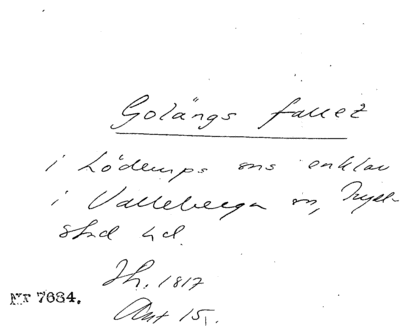 Golängs fallet
i Löderups sns enklav
i Valleberga sn, Ingel-
stad hd.
Th. 1817
Ant 15.
Nr 7684.